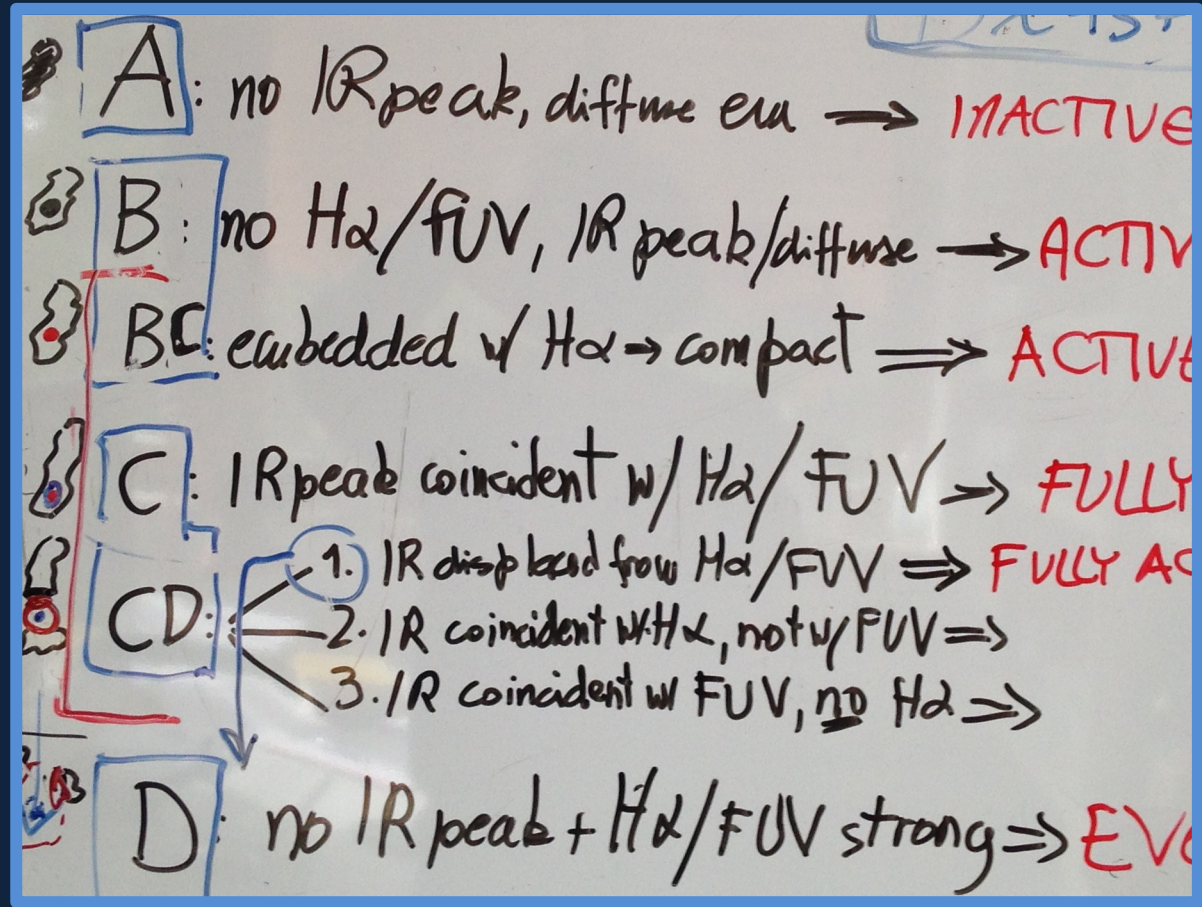 A: no IR peak, diffuse → INACTIVE
B: no Hα/FUV, IR peak/diffuse → ACTIV
BC: embedded w/ Hα → compact ⇒ ACTIVE
C: IR peak coincident w/ Hα/FUV → FULLY
CD: 1. IR displaced from Hα/FUV ⇒ FULLY AC
2. IR coincident w. Hα, not w/ FUV ⇒
3. IR coincident w/ FUV, no Hα ⇒
D: no IR peak + Hα/FUV strong ⇒ EVO